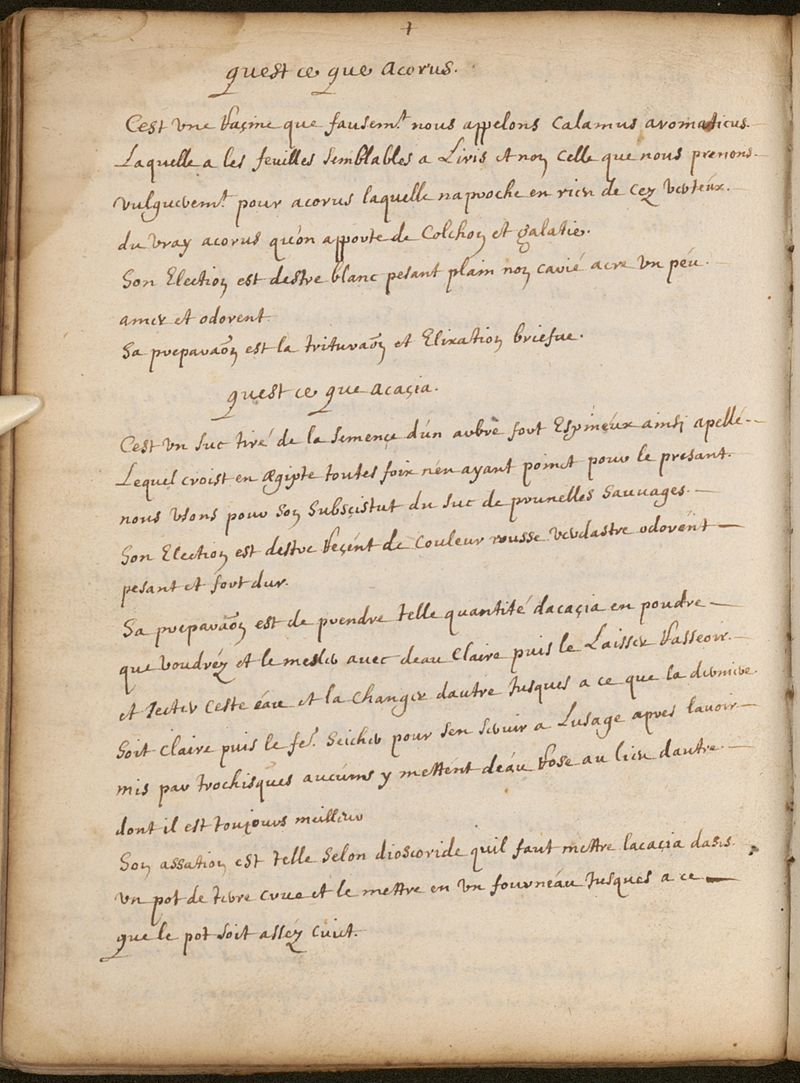 quest ce que Acorus.
Cest vne Racine que fausem.t nous appelons Calamus aromaticus.
Laquelle a les feuilles semblables a Liris et non celle que nous prenons
vulguerem.t pour acorus laquelle naproche en rien de cez verteux.
du vray acorus qu'on apporte de Colchon et galatie.
Son Election est destre blanc pesant plain non cavié acre vn peu
amer et odorent
Sa preparaõn est la trituraõn et Elixation briefue.
quest ce que acaçia.
Cest vn suc tiré de la semençe dún arbre fort Espineux ainsi apellé
Lequel croist en ægipte toutes foix nén ayant poinct pour le presant.
nous vsons pour son subscistut du suc de prunelles sauuages.
Son Election est destre Reçént de couleur rousse verdastre odorént
pesant et fort dur.
Sa preparaõn est de prendre telle quantité dacaçia en poudre
que voudréz et le mesler avec deau claire puis le Laisser Rasseoir.
et Jecter ceste éau et la changer dautre Jusques a ce que la derniere
soit claire puis le fe.t seicher pour sen seruir a Lusage apres lauoir
mis par trochisques aucuns y mettent deáu Rose au lieu dautre
dont il est toujours meillieur
Son assation est telle selon dioscoride quil faut mettre lacaçia dans
vn pot de terre crue et le mettre en vn fourneáu Jusques a ce
que le pot soit asséz cuict.